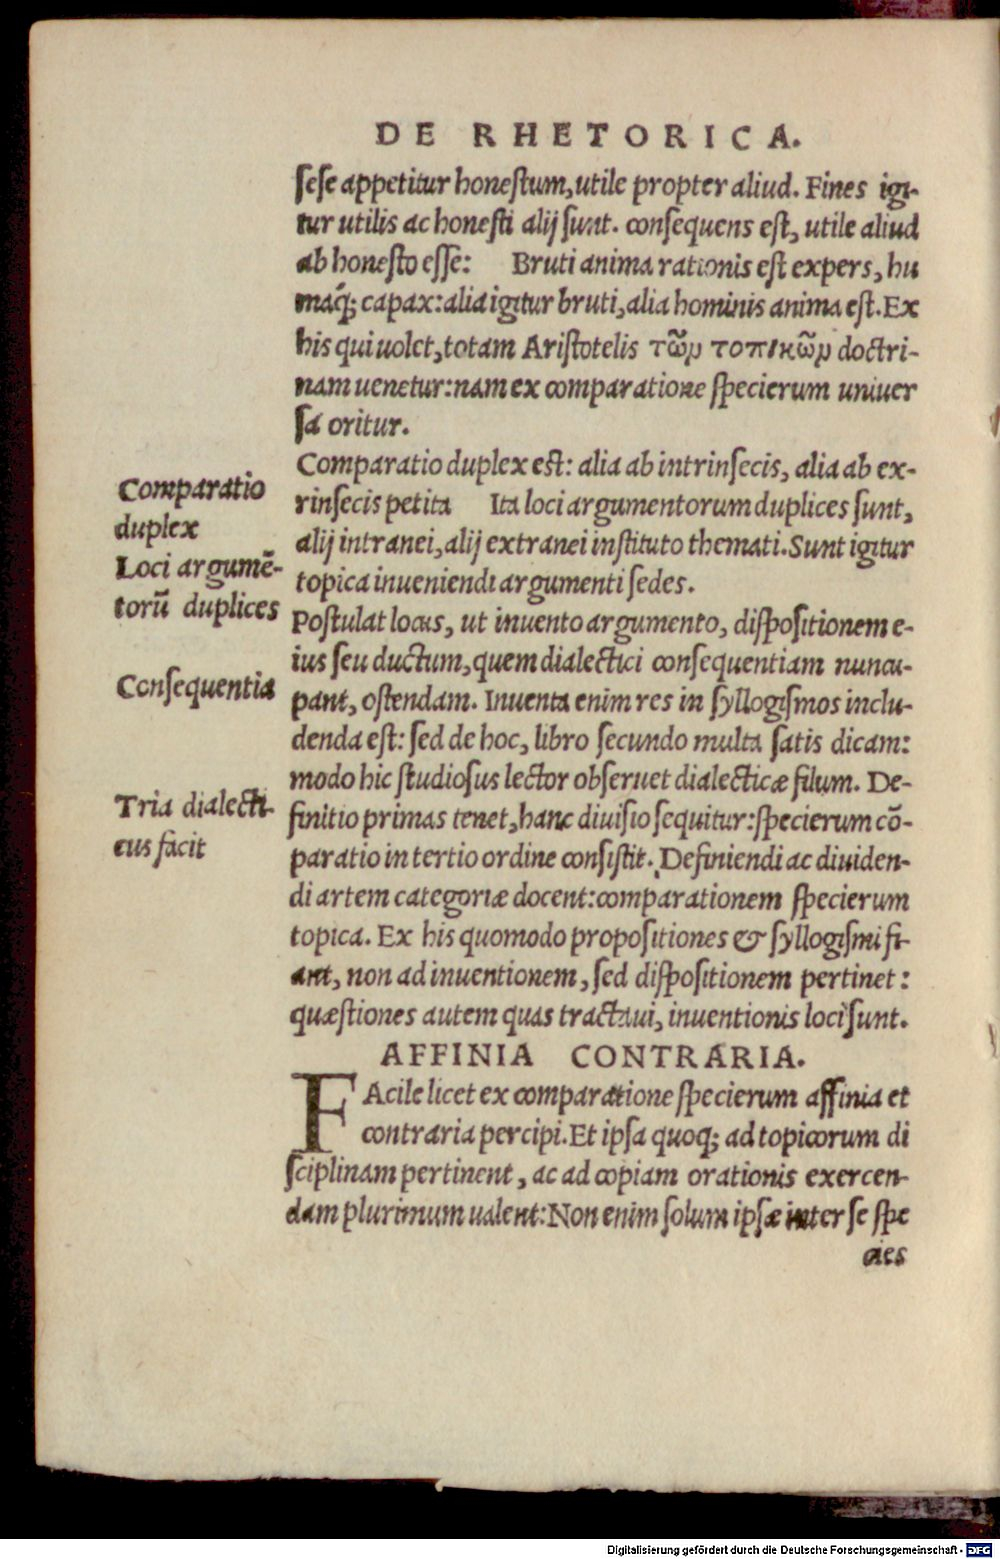 DE RHETORICA.
ſeſe appetitur honeſtum, utile propter aliud. Fines igi-
tur utilis ac honeſti alij ſunt. conſequens eſt, utile aliud
ab honeſto eſſe: Bruti anima rationis eſt expers, hu
māq; capax: alia igitur bruti, alia hominis anima eſt. Ex
his qui uolet, totam Ariſtotelis τῶν τοπικῶν doctri-
nam uenetur: nam ex comparatione ſpecierum uniuer
ſa oritur.
Comparatio duplex eſt: alia ab intrinſecis, alia ab ex-
rinſecis petita Ita loci argumentorum duplices ſunt,
alij intranei, alij extranei inſtituto themati. Sunt igitur
topica inueniendi argumenti ſedes.
Poſtulat locus, ut inuento argumento, diſpoſitionem e-
ius ſeu ductum, quem dialectici conſequentiam nuncu-
pant, oſtendam. Inuenta enim res in ſyllogiſmos inclu-
denda eſt: ſed de hoc, libro ſecundo multa ſatis dicam:
modo hic ſtudioſus lector obſeruet dialecticæ filum. De-
finitio primas tenet, hanc diuiſio ſequitur: ſpecierum cō-
paratio in tertio ordine conſiſtit. Definiendi ac diuiden-
di artem categoriæ docent: comparationem ſpecierum
topica. Ex his quomodo propoſitiones & ſyllogiſmi fi-
ant, non ad inuentionem, ſed diſpoſitionem pertinet:
quæſtiones autem quas tractaui, inuentionis loci ſunt.
Comparatio
duplex
Loci argumē-
torū duplices
Conſequentia
Tria dialecti-
cus facit
AFFINIA CONTRARIA.
FAcile licet ex comparatione ſpecierum affinia et
contraria percipi. Et ipſa quoq; ad topicorum di
ſciplinam pertinent, ac ad copiam orationis exercen-
dam plurimum ualent: Non enim ſolum ipſæ inter ſe ſpe
cies
Digitalisierung gefördert durch die Deutsche Forschungsgemeinschaft - DFG